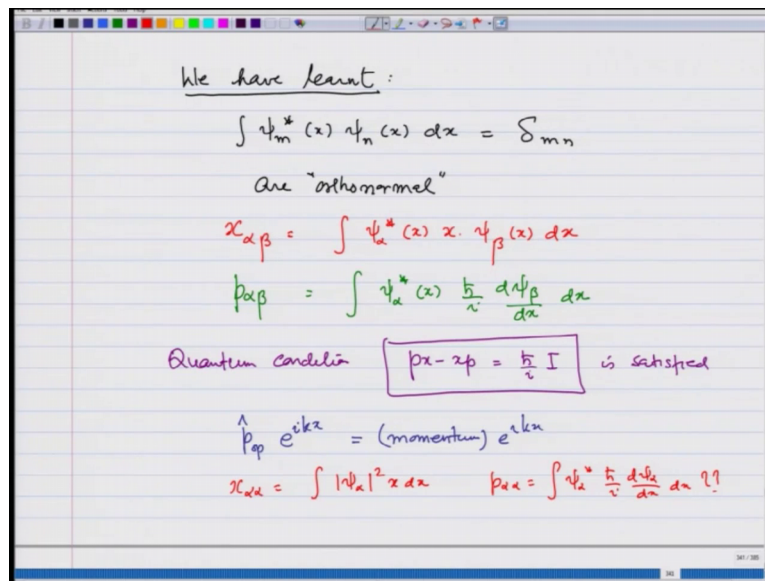 We have learnt :
∫ ψ_m^* (x) ψ_n (x) dx = δ_mn
are "orthonormal"
x_αβ = ∫ ψ_α^* (x) x. ψ_β (x) dx
p_αβ = ∫ ψ_α^* (x) ħ/i dψ_β/dx dx
Quantum condition px - xp = ħ/i I is satisfied
p̂_op e^{ikx} = (momentum) e^{ikx}
x_αα = ∫ |ψ_α|^2 x dx p_αα = ∫ ψ_α^* ħ/i dψ_α/dx dx ??
341 / 385
341